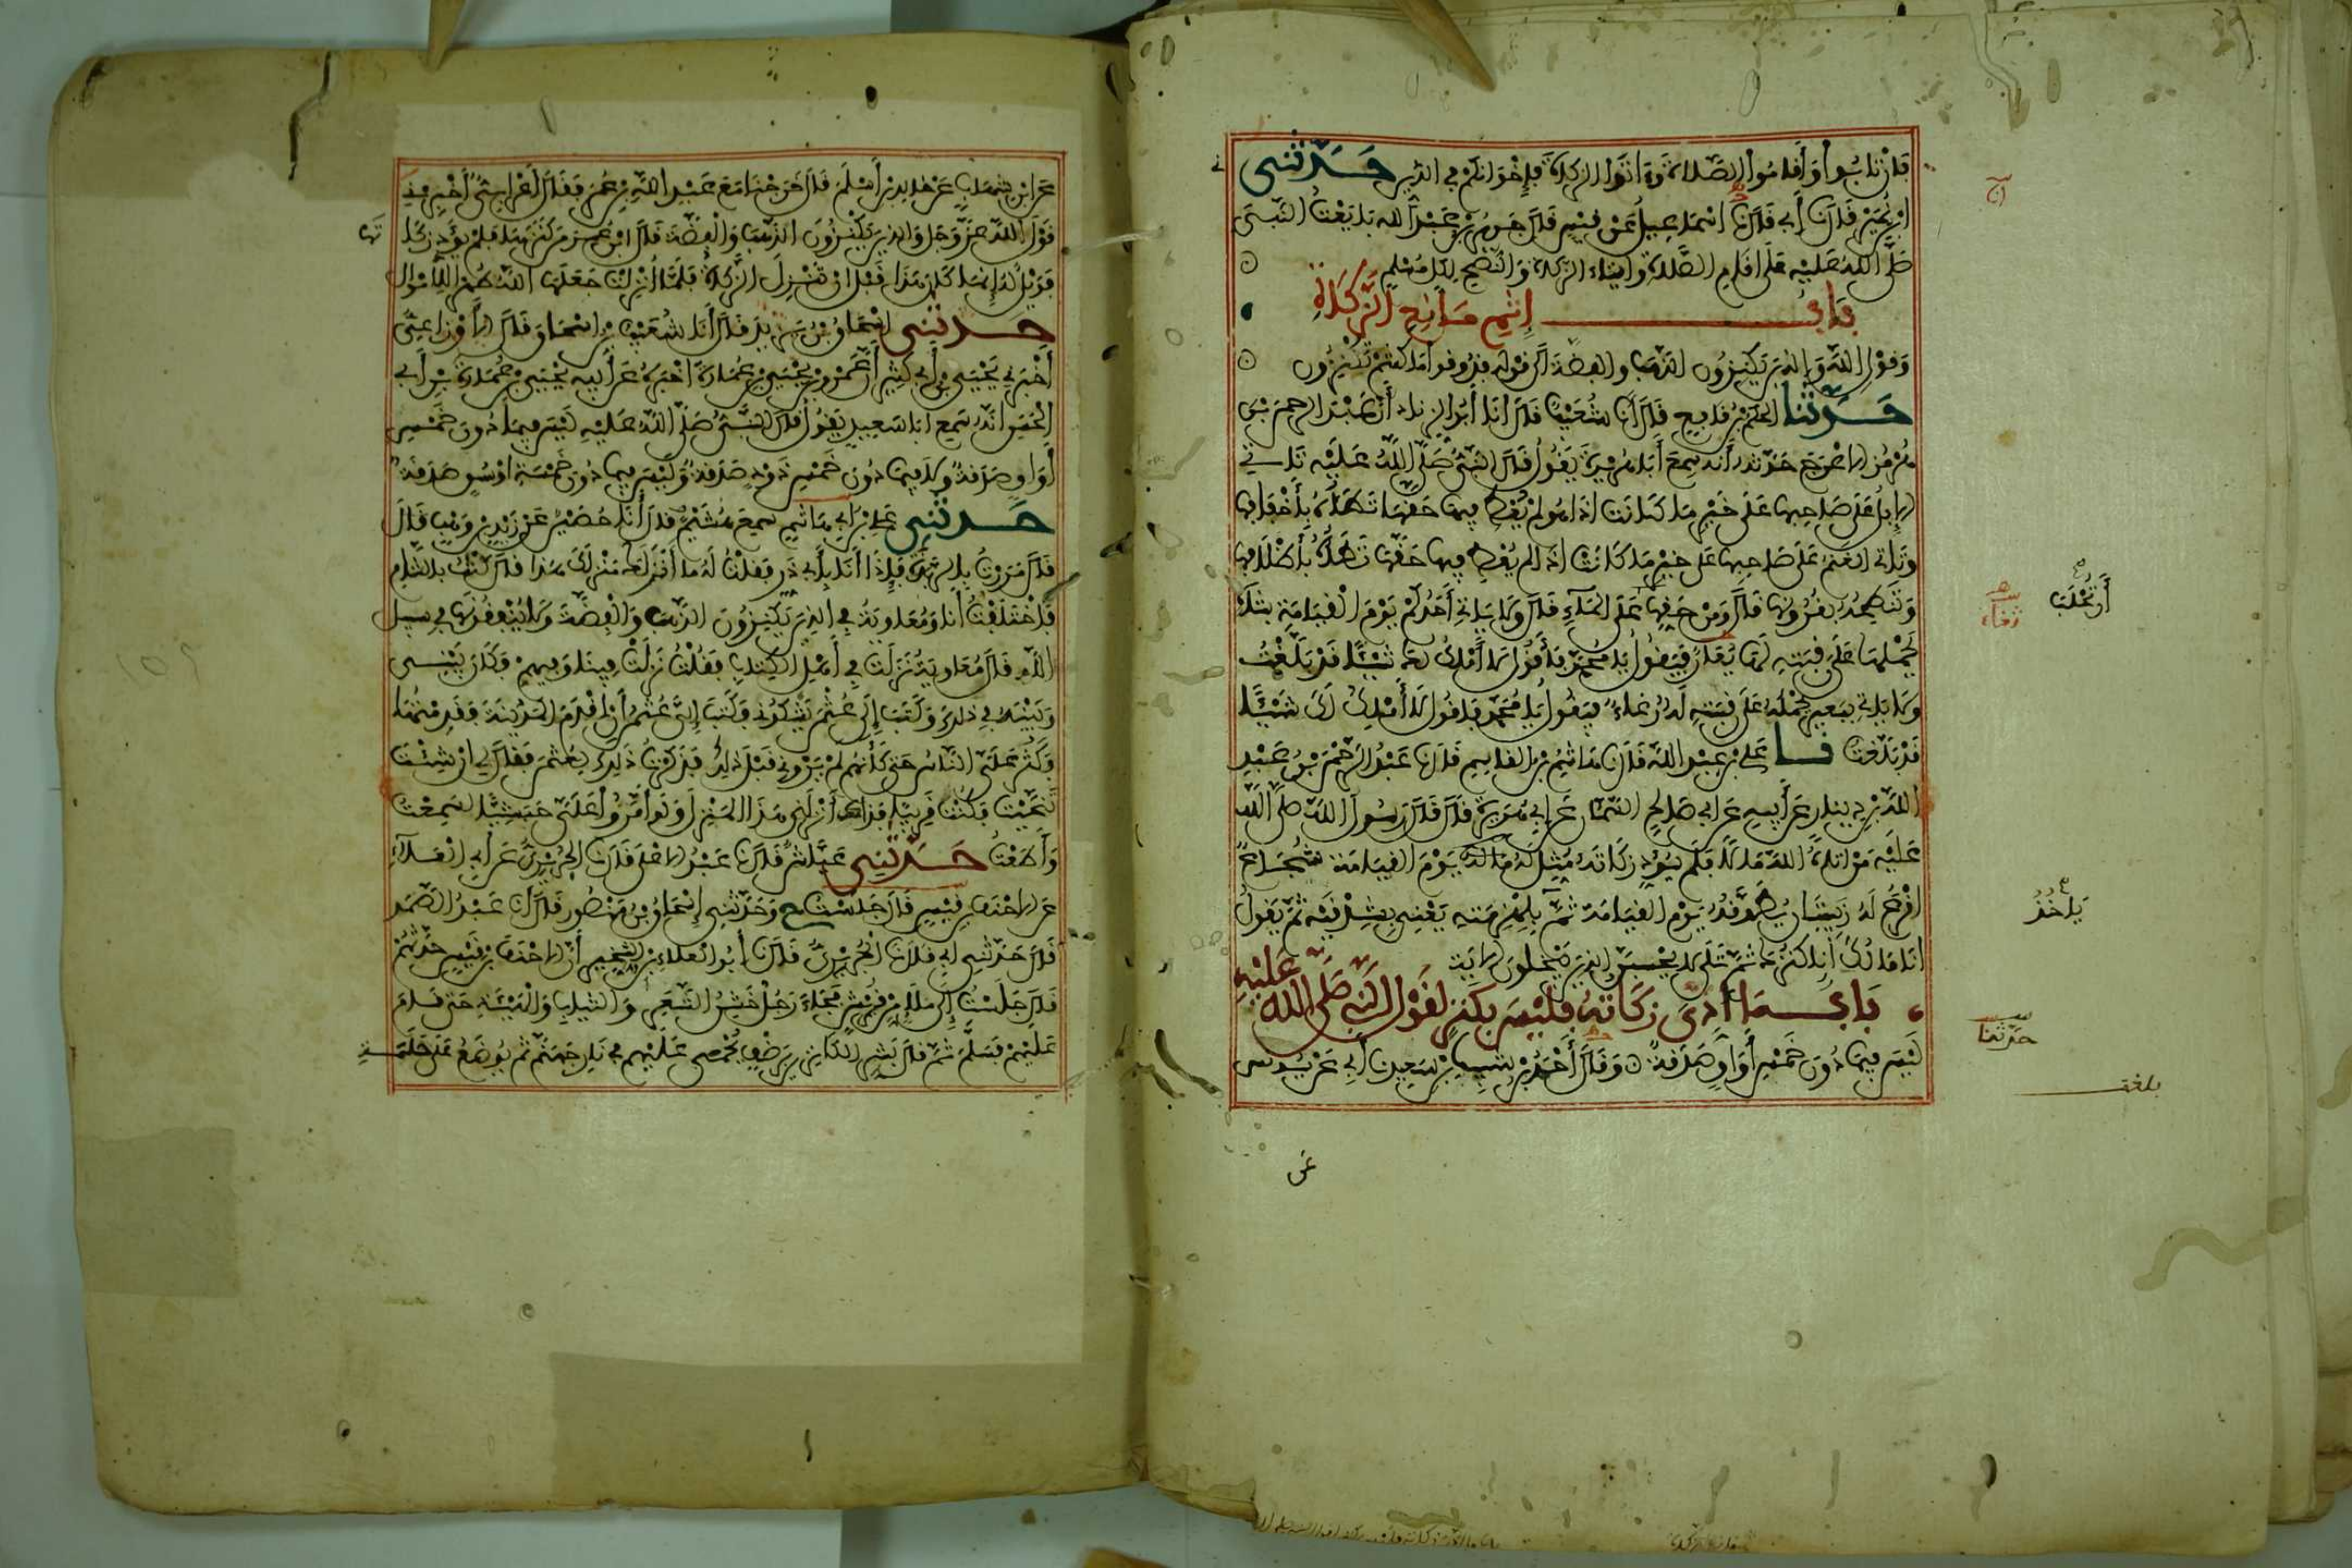 فَإِنْ تَابُوا وَأَقَامُوا الصَّلَاةَ وَءَاتَوُا الزَّكَاةَ فَإِخْوَانُكُمْ فِي الدِّينِ حَدَّثَنِي
ابْنُ نُمَيْرٍ قَالَ نَا أَبِي قَالَ نَا إِسْمَاعِيلُ عَنْ قَيْسٍ قَالَ جَرِيرُ بْنُ عَبْدِ اللهِ بَايَعْتُ النَّبِيَّ
صَلَّى اللهُ عَلَيْهِ عَلَى إِقَامِ الصَّلَاةِ وَإِيتَاءِ الزَّكَاةِ وَالنُّصْحِ لِكُلِّ مُسْلِمٍ
بَابُ إِثْمِ مَانِعِ الزَّكَاةِ
وَقَوْلِ اللهِ وَالَّذِينَ يَكْنِزُونَ الذَّهَبَ وَالْفِضَّةَ إِلَى قَوْلِهِ فَذُوقُوا مَا كُنْتُمْ تَكْنِزُونَ
حَدَّثَنَا الْحَكَمُ بْنُ نَافِعٍ قَالَ أَنَا شُعَيْبٌ قَالَ أَنَا أَبُو الزِّنَادِ أَنَّ عَبْدَ الرَّحْمَنِ بْنَ
هُرْمُزَ الْأَعْرَجَ حَدَّثَهُ أَنَّهُ سَمِعَ أَبَا هُرَيْرَةَ يَقُولُ قَالَ النَّبِيُّ صَلَّى اللهُ عَلَيْهِ تَأْتِي
الْإِبِلُ عَلَى صَاحِبِهَا عَلَى خَيْرِ مَا كَانَتْ إِذَا هُوَ لَمْ يُعْطِ فِيهَا حَقَّهَا تَطَؤُهُ بِأَخْفَافِهَا
وَتَأْتِي الْغَنَمُ عَلَى صَاحِبِهَا عَلَى خَيْرِ مَا كَانَتْ إِذَا لَمْ يُعْطِ فِيهَا حَقَّهَا تَطَؤُهُ بِأَظْلَافِهَا
وَتَنْطِحُهُ بِقُرُونِهَا قَالَ وَمِنْ حَقِّهَا عَلَى الْمَاءِ قَالَ وَلَا يَأْتِي أَحَدُكُمْ يَوْمَ الْقِيَامَةِ بِشَاةٍ
أَنْ تُحْلَبَ
ثغاء
يَحْمِلُهَا عَلَى رَقَبَتِهِ لَهَا يُعَارٌ فَيَقُولُ يَا مُحَمَّدُ فَأَقُولُ لَا أَمْلِكُ لَكَ شَيْئًا قَدْ بَلَّغْتُ
وَلَا يَأْتِي بِبَعِيرٍ يَحْمِلُهُ عَلَى رَقَبَتِهِ لَهُ رُغَاءٌ فَيَقُولُ يَا مُحَمَّدُ فَأَقُولُ لَا أَمْلِكُ لَكَ شَيْئًا
قَدْ بَلَّغْتُ نَا عَلِيُّ بْنُ عَبْدِ اللهِ قَالَ نَا هَاشِمُ بْنُ الْقَاسِمِ قَالَ نَا عَبْدُ الرَّحْمَنِ بْنُ عَبْدِ
اللهِ بْنِ دِينَارٍ عَنْ أَبِيهِ عَنْ أَبِي صَالِحٍ السَّمَّانِ عَنْ أَبِي هُرَيْرَةَ قَالَ قَالَ رَسُولُ اللهِ صَلَّى اللهُ
عَلَيْهِ مَنْ آتَاهُ اللهُ مَالًا فَلَمْ يُؤَدِّ زَكَاتَهُ مُثِّلَ لَهُ مَالُهُ يَوْمَ الْقِيَامَةِ شُجَاعًا
أَقْرَعَ لَهُ زَبِيبَتَانِ يُطَوَّقُهُ يَوْمَ الْقِيَامَةِ ثُمَّ بِلِهْزِمَتِهِ يَعْنِي بِشِدْقَيْهِ ثُمَّ يَقُولُ
يَأْخُذُ
أَنَا مَالُكَ أَنَا كَنْزُكَ ثُمَّ تَلَا لَا يَحْسِبَنَّ الَّذِينَ يَبْخَلُونَ الْآيَةَ
بَابُ مَا أُدِّيَ زَكَاتُهُ فَلَيْسَ بِكَنْزٍ لِقَوْلِ النَّبِيِّ صَلَّى اللهُ عَلَيْهِ
لَيْسَ فِيمَا دُونَ خَمْسِ أَوَاقٍ صَدَقَةٌ وَقَالَ أَحْمَدُ بْنُ شَبِيبِ بْنِ سَعِيدٍ نَا أَبِي عَنْ يُونُسَ
حدثنا
بلغت
عن
عَنِ ابْنِ شِهَابٍ عَنْ خَالِدِ بْنِ أَسْلَمَ قَالَ خَرَجْنَا مَعَ عَبْدِ اللهِ بْنِ عُمَرَ فَقَالَ أَعْرَابِيٌّ أَخْبِرْنِي
قَوْلَ اللهِ عَزَّ وَجَلَّ وَالَّذِينَ يَكْنِزُونَ الذَّهَبَ وَالْفِضَّةَ قَالَ ابْنُ عُمَرَ مَنْ كَنَزَهَا فَلَمْ يُؤَدِّ زَكَا
تَهَا
فَوَيْلٌ لَهُ إِنَّمَا كَانَ هَذَا قَبْلَ أَنْ تُنْزَلَ الزَّكَاةُ فَلَمَّا أُنْزِلَتْ جَعَلَهَا اللهُ طُهْرًا لِلْأَمْوَالِ
حَدَّثَنِي إِسْحَاقُ بْنُ يَزِيدَ قَالَ أَنَا شُعَيْبُ بْنُ إِسْحَاقَ قَالَ الْأَوْزَاعِيُّ
أَخْبَرَنِي يَحْيَى بْنُ أَبِي كَثِيرٍ أَنَّ عَمْرَو بْنَ يَحْيَى بْنِ عُمَارَةَ أَخْبَرَهُ عَنْ أَبِيهِ يَحْيَى بْنِ عُمَارَةَ بْنِ أَبِي
الْحَسَنِ أَنَّهُ سَمِعَ أَبَا سَعِيدٍ يَقُولُ قَالَ النَّبِيُّ صَلَّى اللهُ عَلَيْهِ لَيْسَ فِيمَا دُونَ خَمْسِ
أَوَاقٍ صَدَقَةٌ وَلَا فِيمَا دُونَ خَمْسِ ذَوْدٍ صَدَقَةٌ وَلَيْسَ فِيمَا دُونَ خَمْسَةِ أَوْسُقٍ صَدَقَةٌ
حَدَّثَنِي عَلِيُّ بْنُ أَبِي هَاشِمٍ سَمِعَ هُشَيْمًا قَالَ أَنَا حُصَيْنٌ عَنْ زَيْدِ بْنِ وَهْبٍ قَالَ
قَالَ مَرَرْتُ بِالرَّبَذَةِ فَإِذَا أَنَا بِأَبِي ذَرٍّ فَقُلْتُ لَهُ مَا أَنْزَلَكَ مَنْزِلَكَ هَذَا قَالَ كُنْتُ بِالشَّامِ
فَاخْتَلَفْتُ أَنَا وَمُعَاوِيَةُ فِي الَّذِينَ يَكْنِزُونَ الذَّهَبَ وَالْفِضَّةَ وَلَا يُنْفِقُونَهَا فِي سَبِيلِ
اللهِ قَالَ مُعَاوِيَةُ نَزَلَتْ فِي أَهْلِ الْكِتَابِ فَقُلْتُ نَزَلَتْ فِينَا وَفِيهِمْ فَكَانَ بَيْنِي
وَبَيْنَهُ فِي ذَلِكَ وَكَتَبَ إِلَى عُثْمَانَ يَشْكُونِي فَكَتَبَ إِلَيَّ عُثْمَانُ أَنِ اقْدَمِ الْمَدِينَةَ فَقَدِمْتُهَا
فَكَثُرَ عَلَيَّ النَّاسُ حَتَّى كَأَنَّهُمْ لَمْ يَرَوْنِي قَبْلَ ذَلِكَ فَذَكَرْتُ ذَلِكَ لِعُثْمَانَ فَقَالَ لِي إِنْ شِئْتَ
تَنَحَّيْتَ فَكُنْتَ قَرِيبًا فَذَاكَ أَنْزَلَنِي هَذَا الْمَنْزِلَ وَلَوْ أَمَّرُوا عَلَيَّ حَبَشِيًّا لَسَمِعْتُ
وَأَطَعْتُ حَدَّثَنِي عَيَّاشٌ قَالَ نَا عَبْدُ الْأَعْلَى قَالَ نَا الْجُرَيْرِيُّ عَنْ أَبِي الْعَلَاءِ
عَنِ الْأَحْنَفِ بْنِ قَيْسٍ قَالَ جَلَسْتُ ح وَحَدَّثَنِي إِسْحَاقُ بْنُ مَنْصُورٍ قَالَ أَنَا عَبْدُ الصَّمَدِ
قَالَ حَدَّثَنِي أَبِي قَالَ نَا الْجُرَيْرِيُّ قَالَ نَا أَبُو الْعَلَاءِ بْنُ الشِّخِّيرِ أَنَّ الْأَحْنَفَ بْنَ قَيْسٍ حَدَّثَهُمْ
قَالَ جَلَسْتُ إِلَى مَلَإٍ مِنْ قُرَيْشٍ فَجَاءَ رَجُلٌ خَشِنُ الشَّعَرِ وَالثِّيَابِ وَالْهَيْئَةِ حَتَّى قَامَ
عَلَيْهِمْ فَسَلَّمَ ثُمَّ قَالَ بَشِّرِ الْكَانِزِينَ بِرَضْفٍ يُحْمَى عَلَيْهِمْ فِي نَارِ جَهَنَّمَ ثُمَّ يُوضَعُ عَلَى حَلَمَةِ